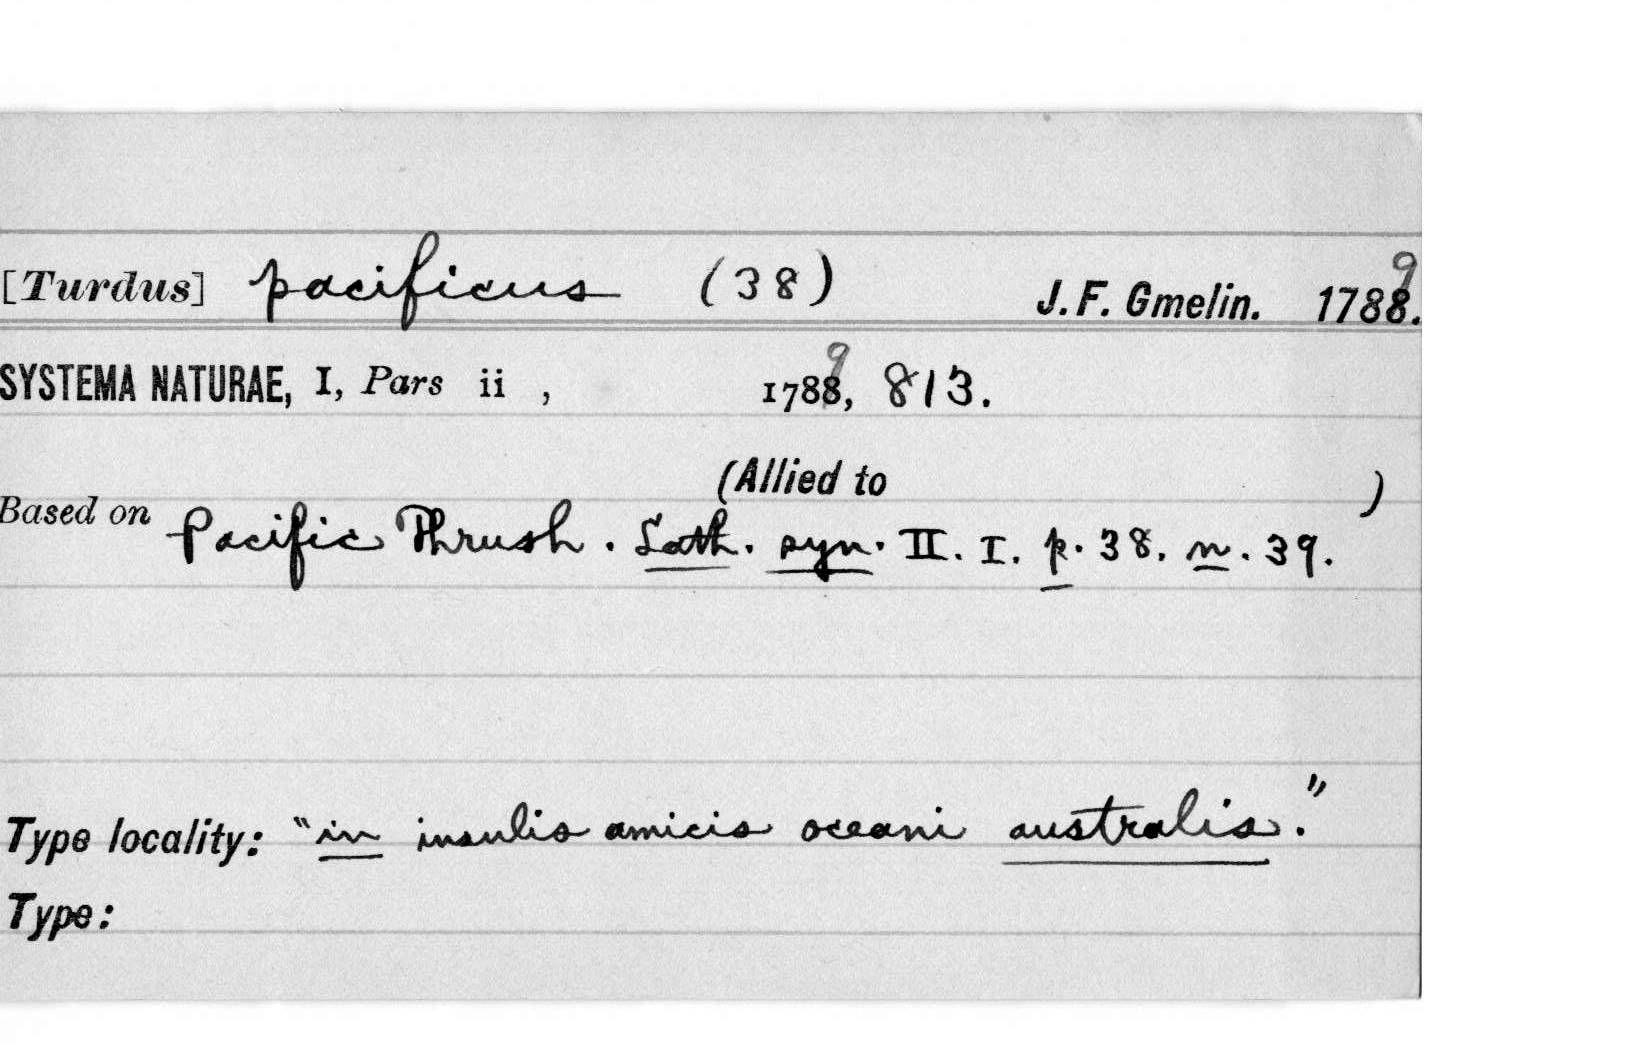 [Turdus] pacificus (38) J. F. Gmelin. 17889.
SYSTEMA NATURAE, I, Pars ii , 17889, 813.
(Allied to )
Based on Pacific Thrush. Lath. syn. II. I. p. 38. n. 39.
Type locality: "in insulis amicis oceani australis."
Type: